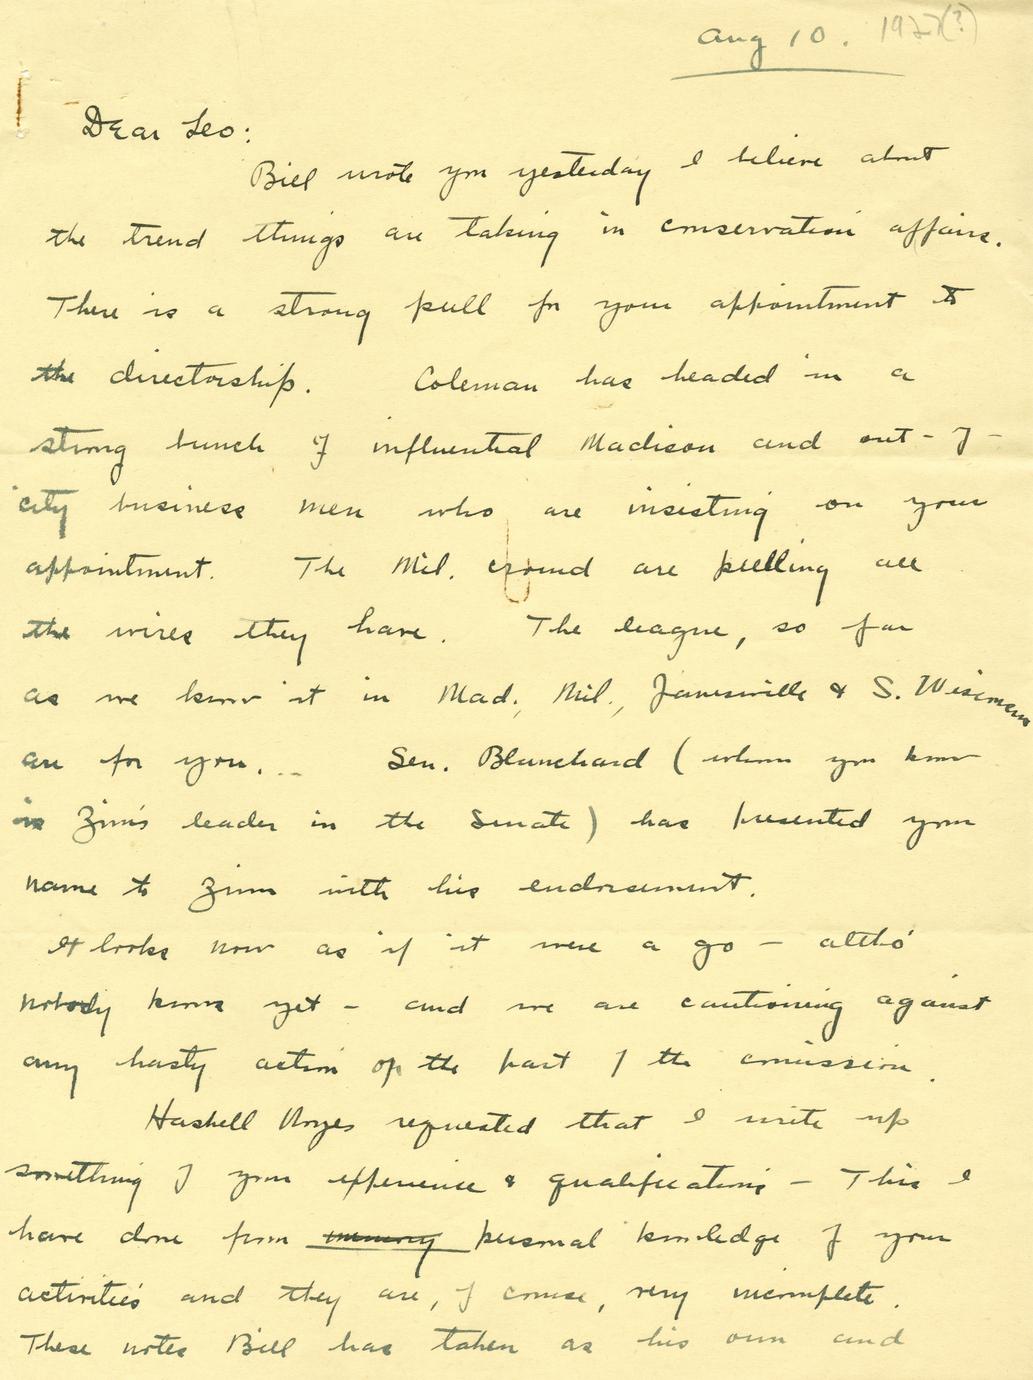 Aug 10. 1927(?)
Dear Leo:
Bill wrote you yesterday I believe about
the trend things are taking in conservation affairs.
There is a strong pull for your appointment to
the directorship. Coleman has headed in a
strong bunch of influential Madison and out-of-
city business men who are insisting on your
appointment. The Mil. crowd are pulling all
the wires they have. The league, so far
as we know it in Mad., Mil., Janesville & S. Wisconsin
are for you... Sen. Blanchard (whom you know
is Zim's leader in the Senate) has presented your
name to Zimm with his endorsement.
It looks now as if it were a go - altho'
nobody knows yet - and we are cautioning against
any hasty action on the part of the comission.
Haskell Noyes requested that I write up
something of your experience & qualifications - This I
have done from memory personal knowledge of your
activities and they are, of course, very incomplete.
These notes Bill has taken as his own and